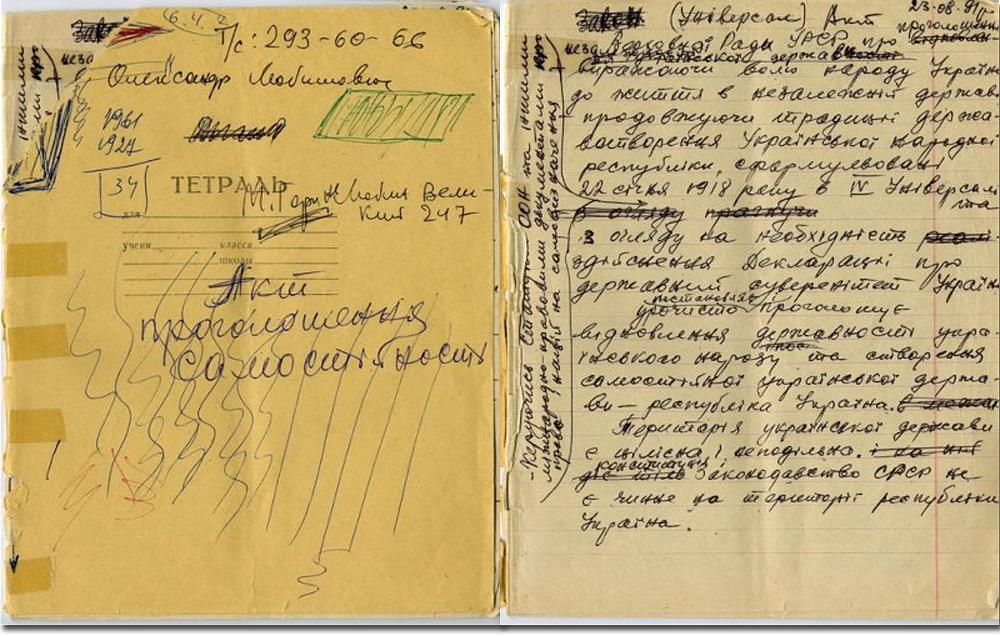 (6.4.2
Т/с: 293-60-66
Олександр Любимович
1961
1927
34
ТЕТРАДЬ
М. Горь
Вели-
кий 247
для
учени класса
школы
Акт
проголошення
самостійності
Закон (Універсал) Акт
23.08.91р.
проголошення
Верховної Ради УРСР про
української держав
виражаючи волю народу України
до життя в незалежній державі
продовжуючи традиції держа-
вотворення Української народної
республіки, сформульовані
22 січня 1918 року в IV Універсалі
та
в огляду
з огляду на необхідність
здійснення Декларації про
державний суверенітет України
урочисто проголошує
відновлення державності укра-
їнського народу та створення
самостійної української держа-
ви — республіка Україна.
Територія української держави
є цілісна і неподільна.
конституція і
законодавство СРСР не
є чинне на території республіки
Україна.
- Керуючись Статутом ООН та іншими
міжнародно-правовими документами про
право націй на самовизначення